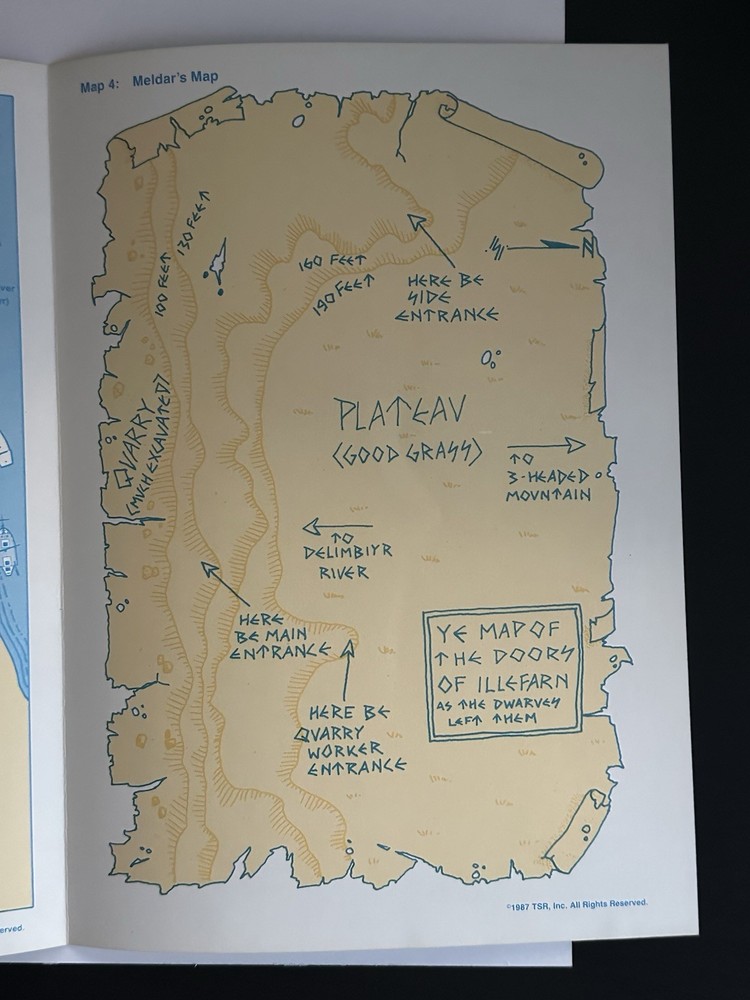 Map 4: Meldar's Map
130 FEET
100 FEET
160 FEET
190 FEET
N
HERE BE
SIDE
ENTRANCE
QUARRY
(MUCH EXCAVATED)
PLATEAU
(GOOD GRASS)
TO
3-HEADED
MOUNTAIN
TO
DELIMBIYR
RIVER
HERE
BE MAIN
ENTRANCE
HERE BE
QUARRY
WORKER
ENTRANCE
YE MAP OF
THE DOORS
OF ILLEFARN
AS THE DWARVES
LEFT THEM
©1987 TSR, Inc. All Rights Reserved.
erved.